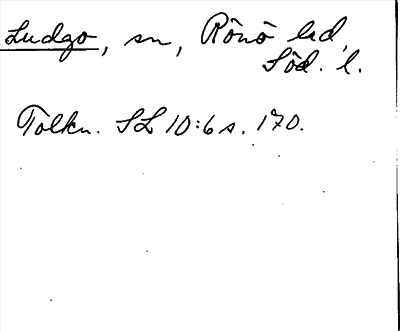 Ludgo, sn, Rönö hd,
Söd. l.
Tolkn. SL 10:6 s. 170.